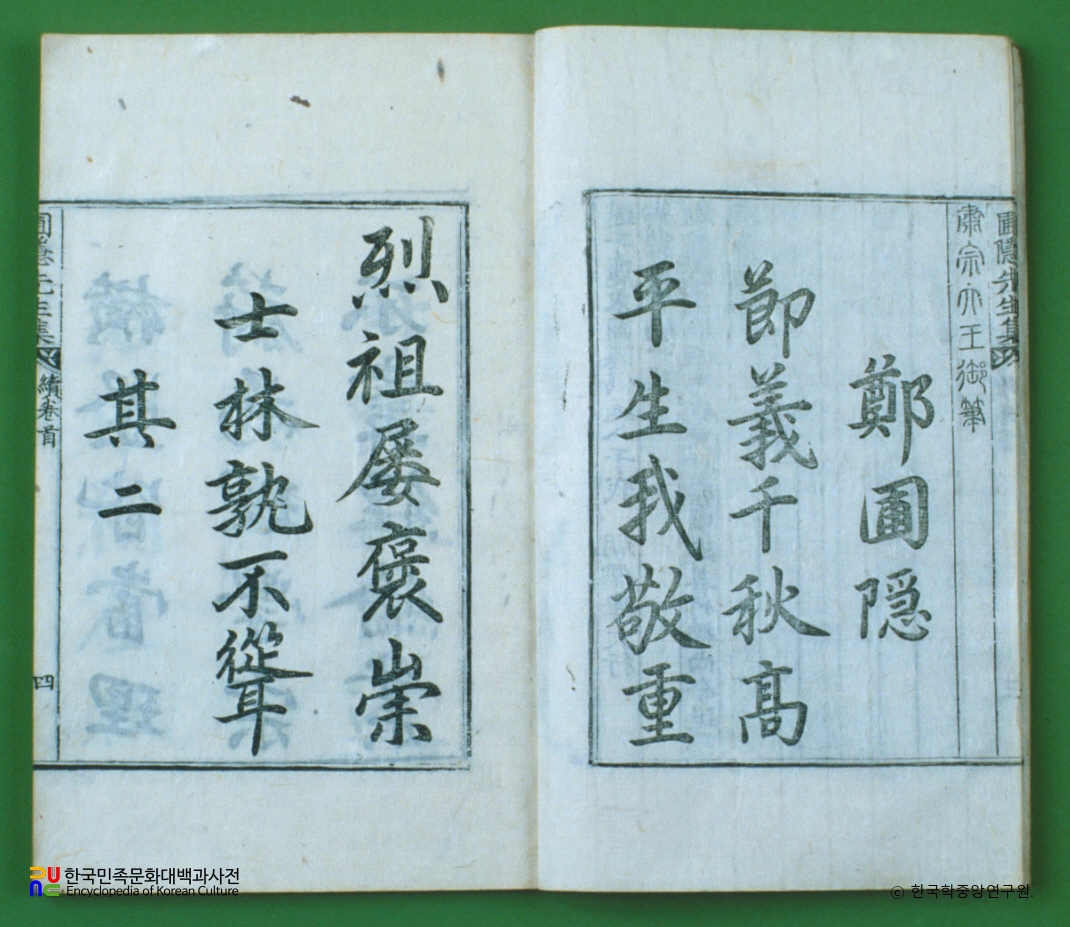 圃隱先生集
肅宗大王御筆
鄭圃隠
節義千秋高
平生我敬重
烈祖屡褒崇
士林孰不聳
其二
圃隱先生集
續卷首
四
한국민족문화대백과사전
Encyclopedia of Korean Culture
© 한국학중앙연구원.